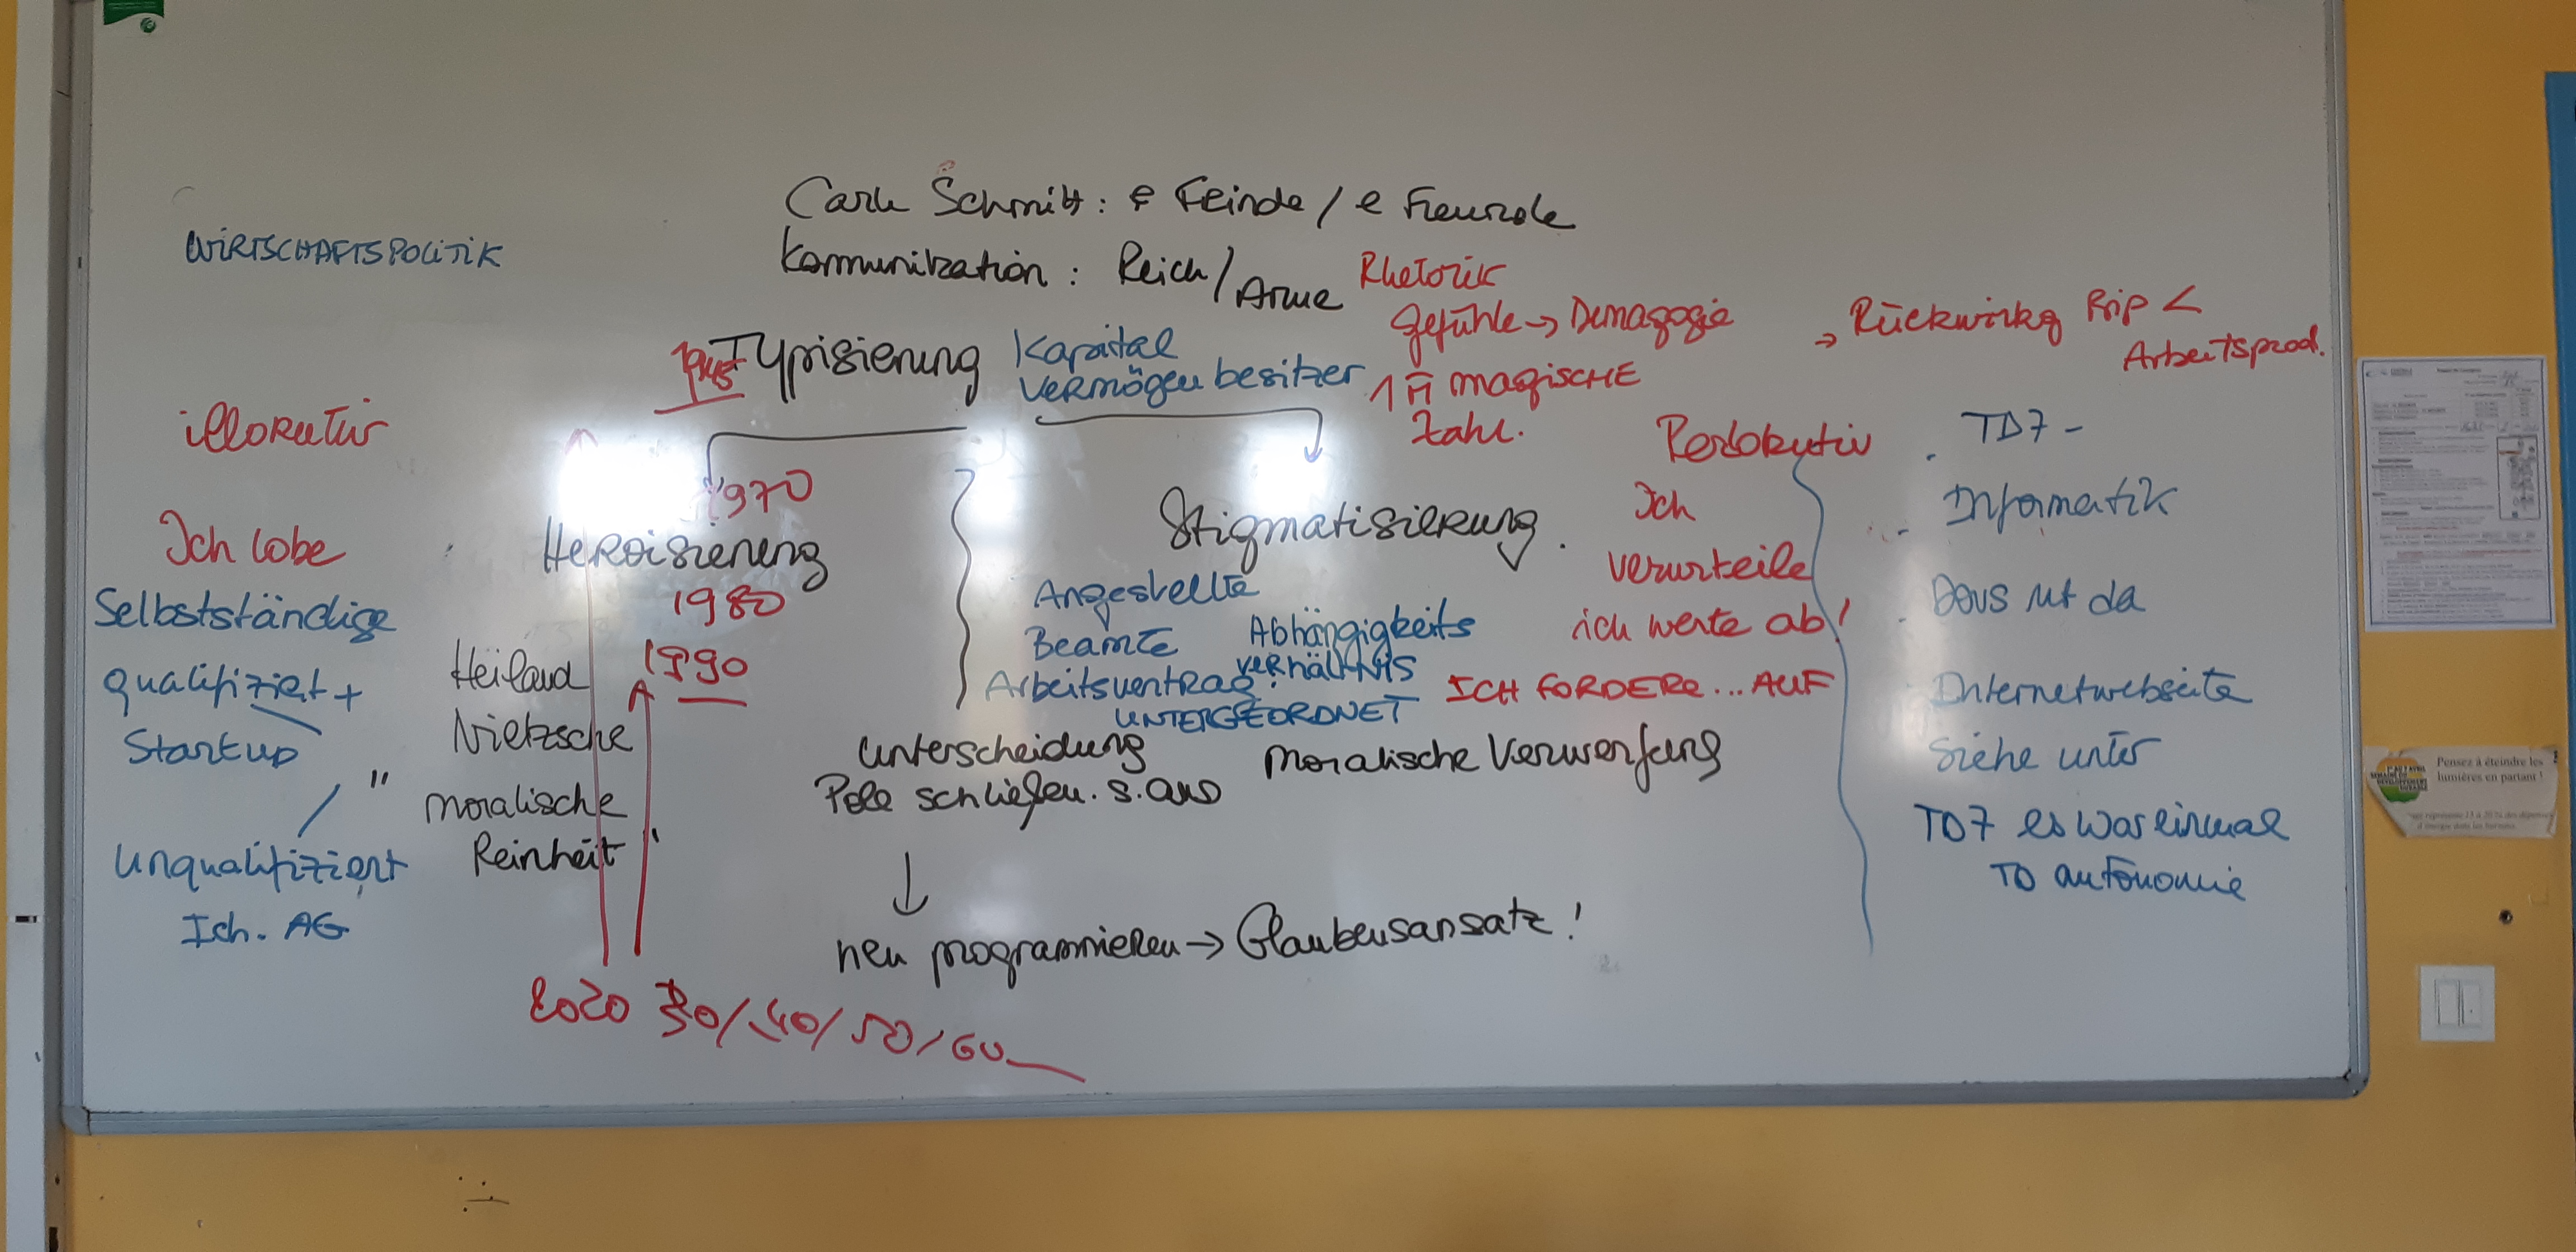 Carl Schmitt: e Feinde / e Freunde
WIRTSCHAFTSPOLITIK
Kommunikation : Reich / Arme
Rhetorik
Gefühle → Demagogie
→ Rückwirkg BIP <
Arbeitsprod.
1945
Typisierung
Kapital
Vermögen besitzer
1 M magische
Zahl.
illokutiv
Perlokutiv
1970
Heroisierung
Stigmatisierung
Ich lobe
Ich
verurteile
1980
Selbstständige
Angestellte
Beamte
Abhängigkeits
verhältnis
ich werte ab!
1990
Heiland
qualifiziert +
Arbeitsvertrag
UNTERGEORDNET
ICH FORDERE... AUF
Nietzsche
Startup
"
moralische
Reinheit
Unterscheidung
Pole schließen. s. aus
Moralische Verwerfung
unqualifiziert
Ich. AG
↓
neu programmieren → Glaubensansatz!
2020 30/40/50/60
. TD7 -
- Informatik
- Dous ut da
Internetwebseite
Siehe unter
TD7 es war einmal
TD autonomie
Pensez à éteindre les
lumières en partant !